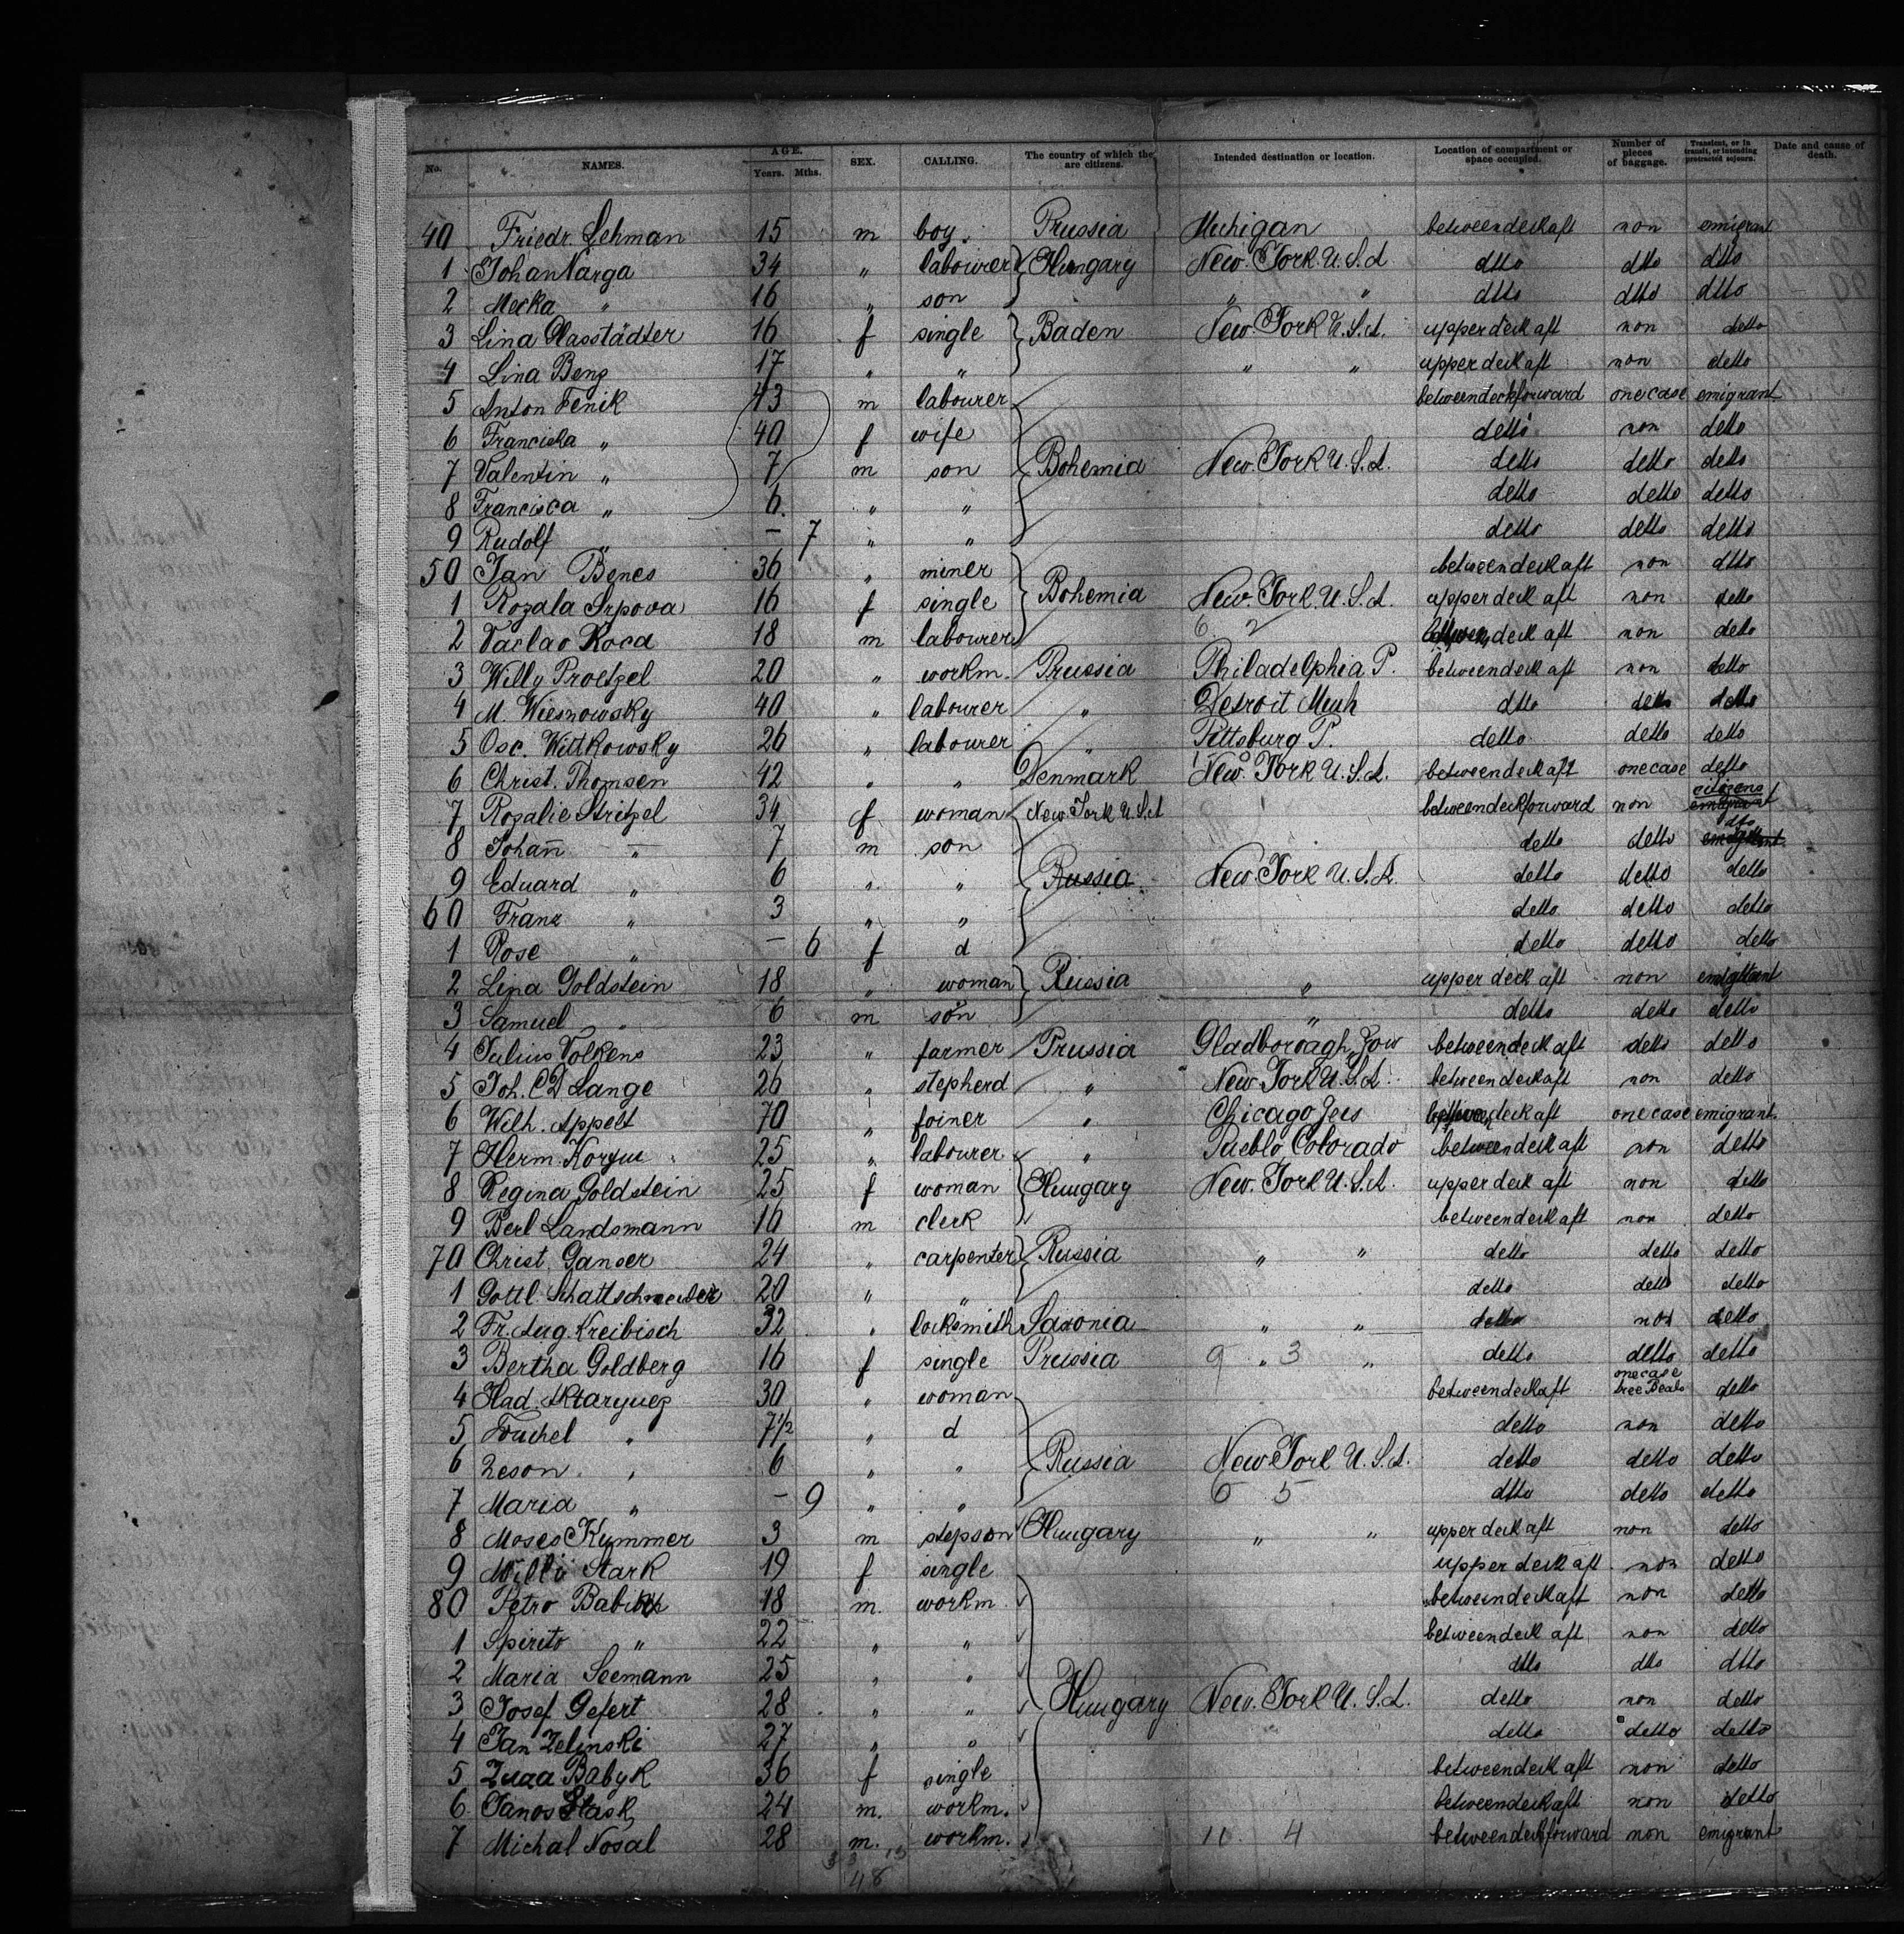 No. NAMES. AGE. Years. Mths. SEX. CALLING. The country of which the are citizens. Intended destination or location. Location of compartment or space occupied. Number of pieces of baggage. Transient, or in transit, or intending protracted sojourn. Date and cause of death.
40 Friedr. Lehman 15 m boy. Prussia Michigan betweendeck aft non emigrant
1 Johan Varga 34 " labourer Hungary New. York. U. S. A dtto dtto dtto
2 Mecka " 16 " son " " dtto dtto dtto
3 Lina Glasstädter 16 f single Baden New. York U. S. A. upper deck aft non detto
4 Lina Benz 17 " " " " upper deck aft non detto
5 Anton Fenik 43 m labourer betweendeck forward one case emigrant
6 Franciska " 40 f wife detto non detto
7 Valentin " 7 m son Bohemia New. York U. S. A. detto detto detto
8 Francisca " 6. " " detto detto detto
9 Rudolf " – 7 " " detto detto detto
50 Jan Benes 36 " miner betweendeck aft non dtto
1 Rozala Srpova 16 f single Bohemia New. York. U. S. A. upper deck aft non detto
2 Vaclav Roca 18 m labourer 6 2 deck aft non detto
3 Willy Proetzel 20 " workm. Prussia Philadelphia P. betweendeck aft non detto
4 M. Wiesnowsky 40 " labourer " Detroit Mich dtto detto detto
5 Osc. Wittkowsky 26 " labourer " Pittsburg P. detto detto detto
6 Christ. Thomsen 42 " " Denmark New. York U. S. A. betweendeck aft one case detto
7 Rozalie Stritzel 34 f woman New. York U. S. A betweendeck forward non citizens emigrant
8 Johan̄ " 7 m son detto detto dtto emigrant
9 Eduard " 6 " " Russia New York U. S. A. detto detto detto
60 Franz " 3 " " detto detto detto
1 Rose " – 6 f d detto detto detto
2 Lina Goldstein 18 " woman Russia " upper deck aft non emigrant
3 Samuel " 6 m son " detto detto detto
4 Julius Volkens 23 " farmer Prussia Gladboroagh Jow betweendeck aft detto detto
5 Joh. C D Lange 26 " stepherd " New York U. S. A. betweendeck aft non detto
6 Wilh. Appelt 70 " joiner " Chicago deck aft one case emigrant
7 Herm. 25 " labourer " Pueblo Colorado betweendeck aft non detto
8 Regina Goldstein 25 f woman Hungary New. York U. S. A. upper deck aft non detto
9 Berl Landsmann 16 m clerk betweendeck aft non detto
70 Christ. Ganser 24 " carpenter Russia " " detto detto detto
1 Gottl. Schattschneider 20 " " detto detto detto
2 Fr. Aug. Kreibisch 32 " locksmith Saxonia " " detto non detto
3 Bertha Goldberg 16 f single Prussia 9 " 3 " detto detto detto
4 30 " woman betweendeck aft one case tree Beals detto
5 " 7½ " d detto non detto
6 " 6 " " Russia New York U. S. A. detto detto detto
7 Maria " – 9 " " 6 5 dtto detto detto
8 Moses Kummer 3 m stepson Hungary " " upper deck aft non detto
9 Stark 19 f single upper deck aft non detto
80 Petro 18 m. workm betweendeck aft non detto
1 Spirito " 22 " " betweendeck aft non detto
2 Maria Seemann 25 " " dtto dtto dtto
3 Josef Gefert 28 " " Hungary New. York U. S. A. detto non detto
4 Jan Zelinski 27 " " detto detto detto
5 Zuza Babyk 36 f single betweendeck aft non detto
6 Janos 24 m. workm. betweendeck aft non detto
7 Michal Nosal 28 m. workm. 11. 4 betweendeck forward non emigrant
48